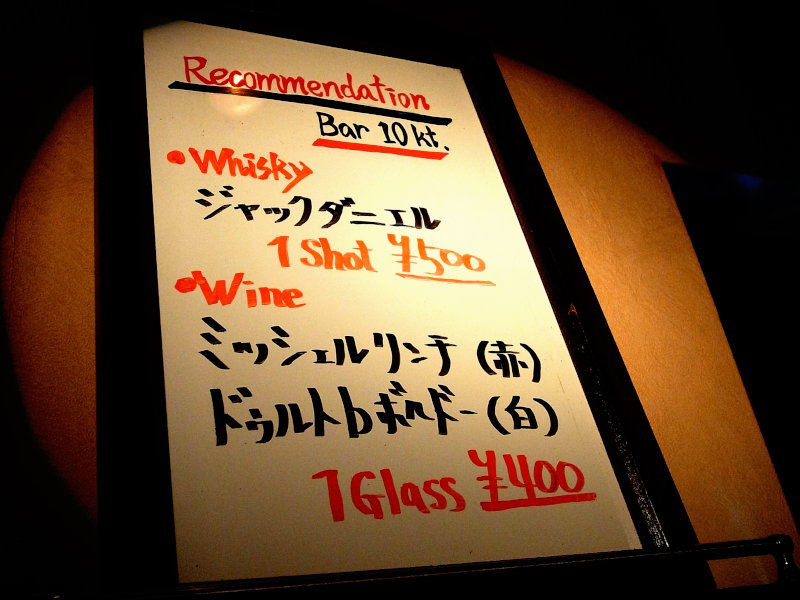 Recommendation
Bar 10kt.
•Whisky
ジャックダニエル
1 Shot ¥500
•Wine
ミッシェルリンチ (赤)
ドゥルトbボルドー (白)
1 Glass ¥400